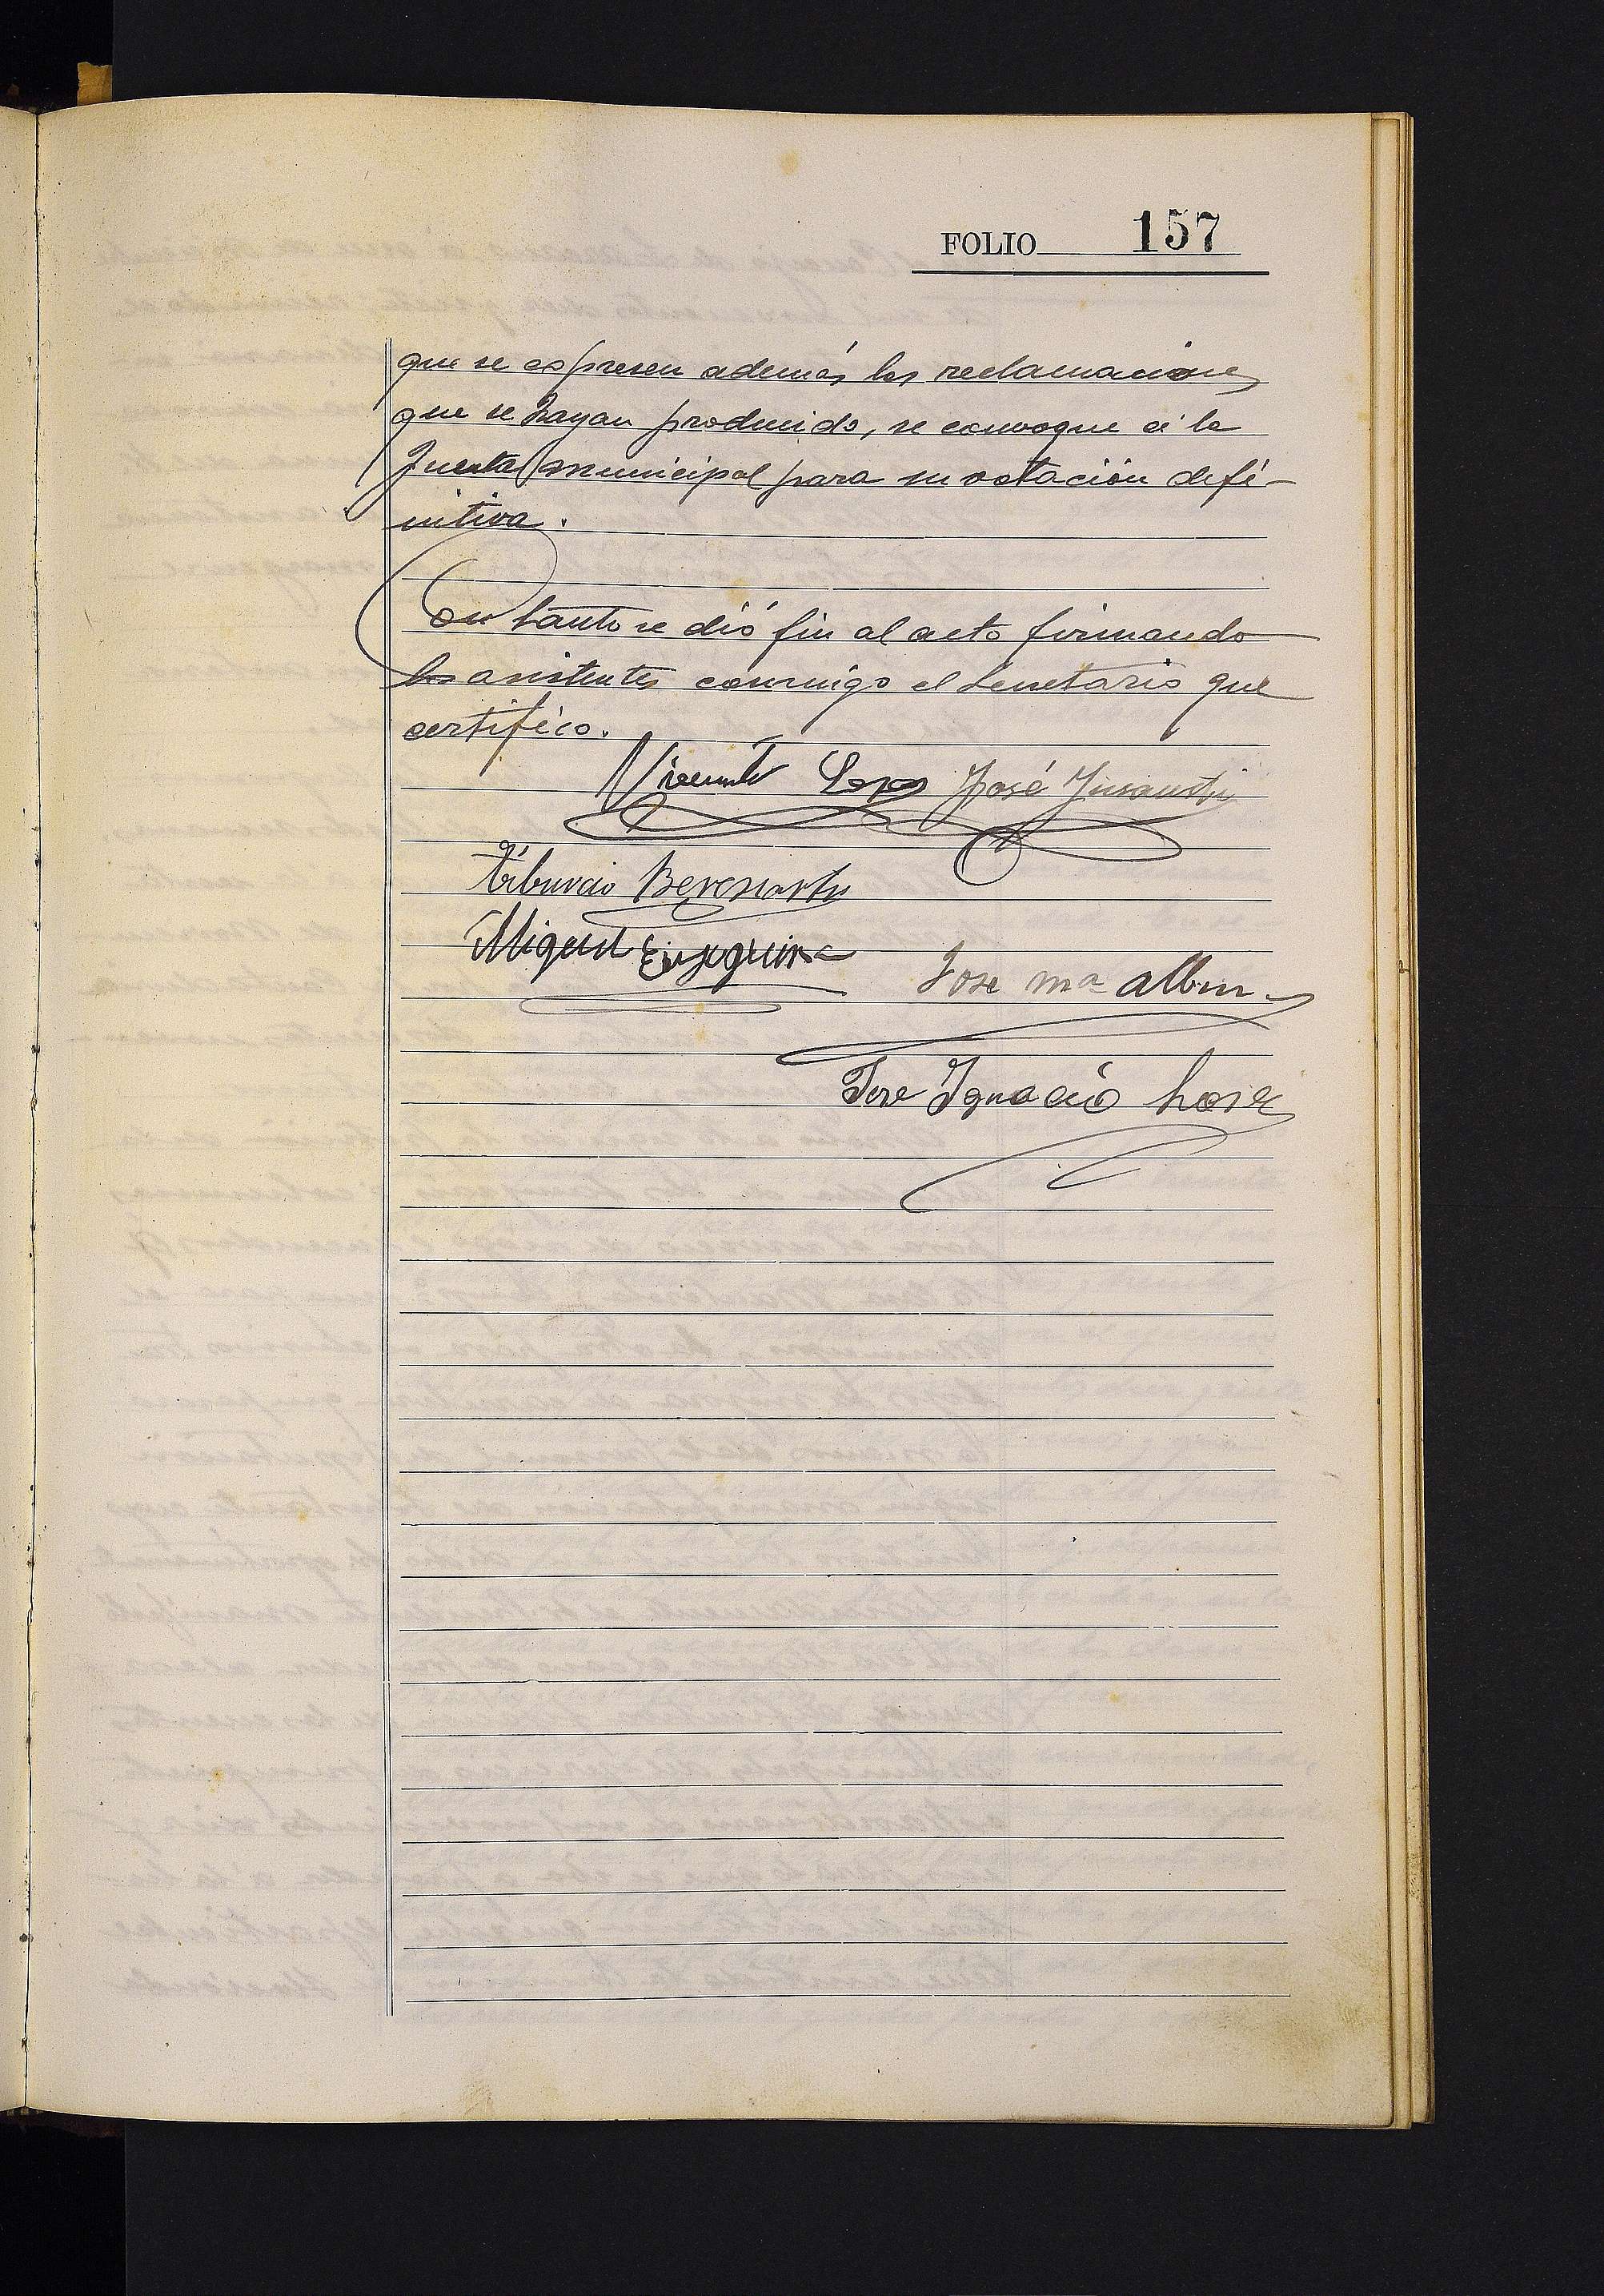 FOLIO 157
que se espresen además las reclamaciones
que se hayan producido, se convoque á la
Junta municipal para su votación defi-
nitiva.
Con tanto se dió fin al acto firmando
los asistentes conmigo el Secretario que
certifico.
Vicente Lasa José Insausti
Tiburcio Beresiartu
Miguel Eizaguirre
Jose Ma
Jose Ignacio